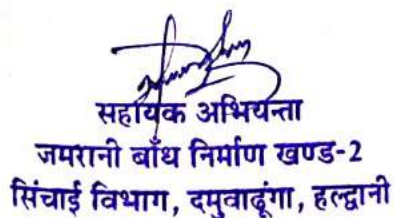 सहायक अभियन्ता
जमरानी बाँध निर्माण खण्ड-2
सिंचाई विभाग, दमुवाढूंगा, हल्द्वानी